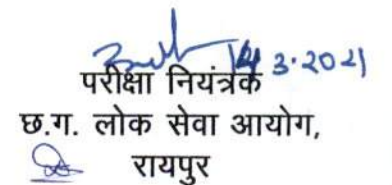 14 3.2021
परीक्षा नियंत्रक
छ.ग. लोक सेवा आयोग,
रायपुर